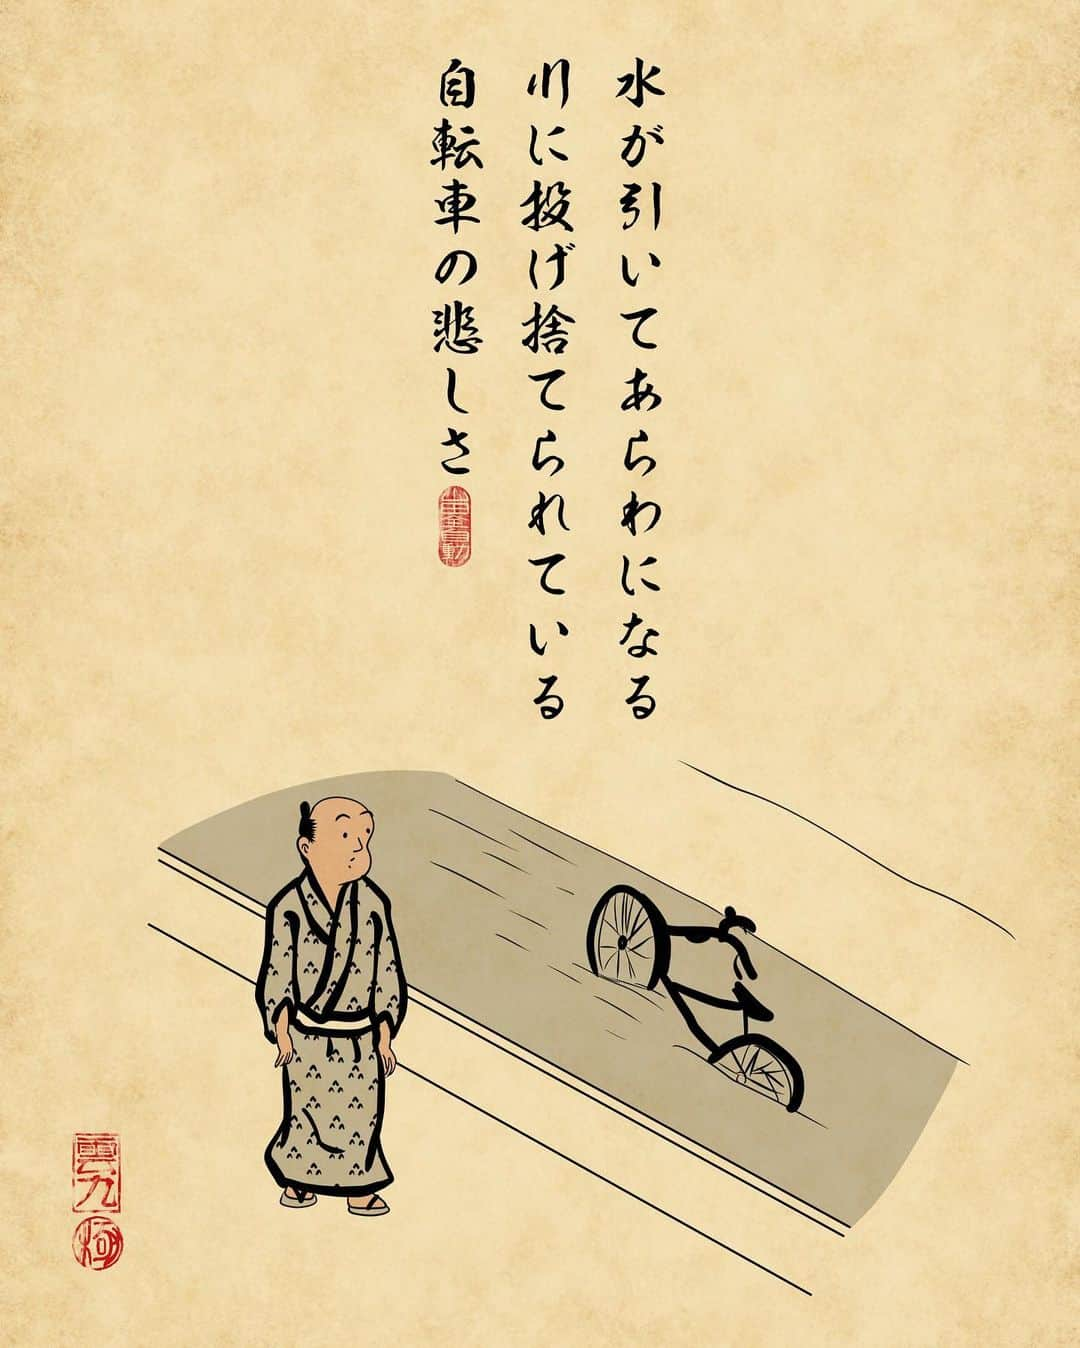 水が引いてあらわになる
川に投げ捨てられている
自転車の悲しさ